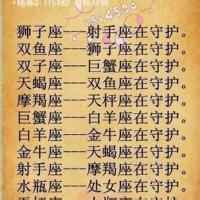 狮子座---射手座在守护。
双鱼座---狮子座在守护。
双子座---巨蟹座在守护。
天蝎座---双鱼座在守护。
摩羯座---天秤座在守护。
巨蟹座---白羊座在守护。
白羊座---金牛座在守护。
金牛座---天蝎座在守护。
射手座---摩羯座在守护。
水瓶座---处女座在守护。